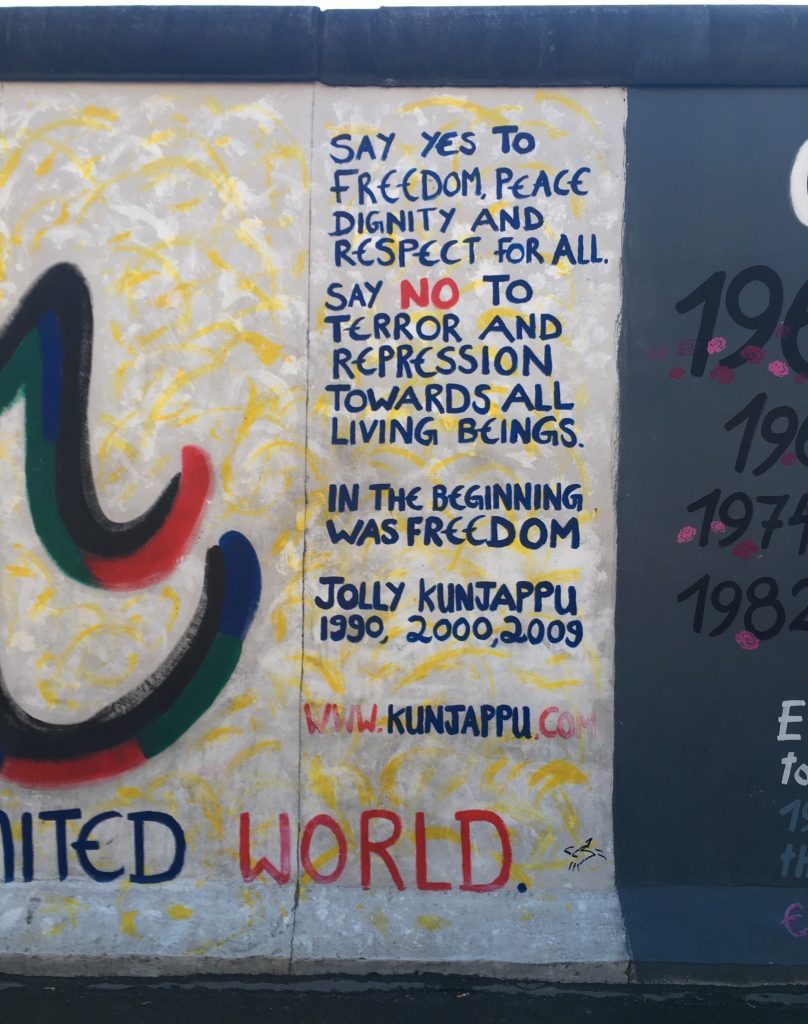 SAY YES TO
FREEDOM, PEACE
DIGNITY AND
RESPECT FOR ALL.
SAY NO TO
TERROR AND
REPRESSION
TOWARDS ALL
LIVING BEINGS.
IN THE BEGINNING
WAS FREEDOM
JOLLY KUNJAPPU
1990, 2000, 2009
WWW.KUNJAPPU.COM
NITED WORLD.
196
196
1974
1982
E
to
19
th
€